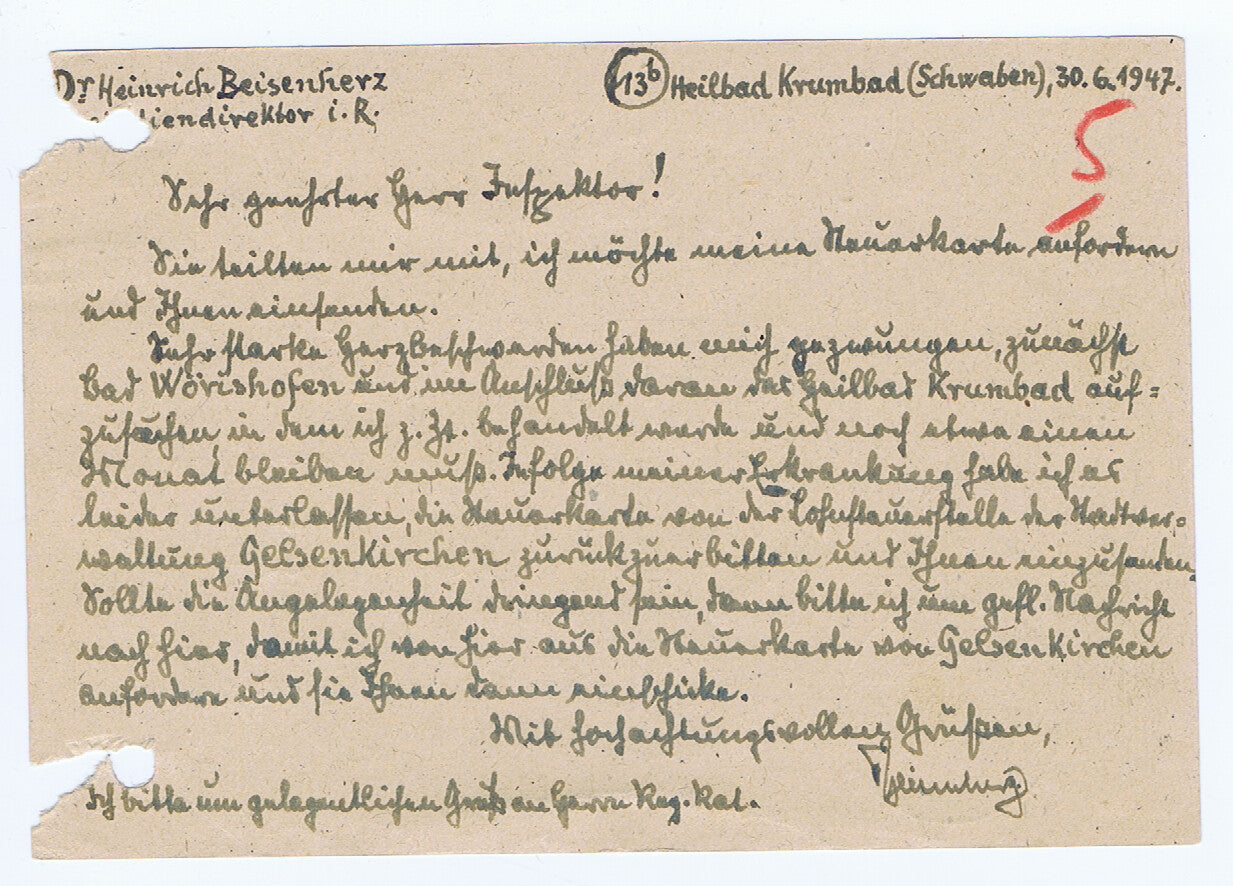 Dr Heinrich Beisenherz
(13b) Heilbad Krumbad (Schwaben), 30.6.1947.
iendirektor i. R.
5
Sehr geehrter Herr Inspektor!
Sie teilten mir mit, ich möchte meine Steuerkarte anfordern
und Ihnen einsenden.
Sehr starke Herzbeschwerden haben mich gezwungen, zunächst
Bad Wörishofen und im Anschluß daran das Heilbad Krumbad auf=
zusuchen, in dem ich z. Zt. behandelt werde und noch etwa einen
Monat bleiben muß. Infolge meiner Erkrankung habe ich es
leider unterlassen, die Steuerkarte von der Lohnsteuerstelle der Stadtver=
waltung Gelsenkirchen zurückzuerbitten und Ihnen einzusenden.
Sollte die Angelegenheit dringend sein, dann bitte ich um gefl. Nachricht
nach hier, damit ich von hier aus die Steuerkarte von Gelsenkirchen
anfordere und sie Ihnen dann einschicke.
Mit hochachtungsvollen Grüßen,
Ich bitte um gelegentlichen Gruß an Herrn Reg. Rat.